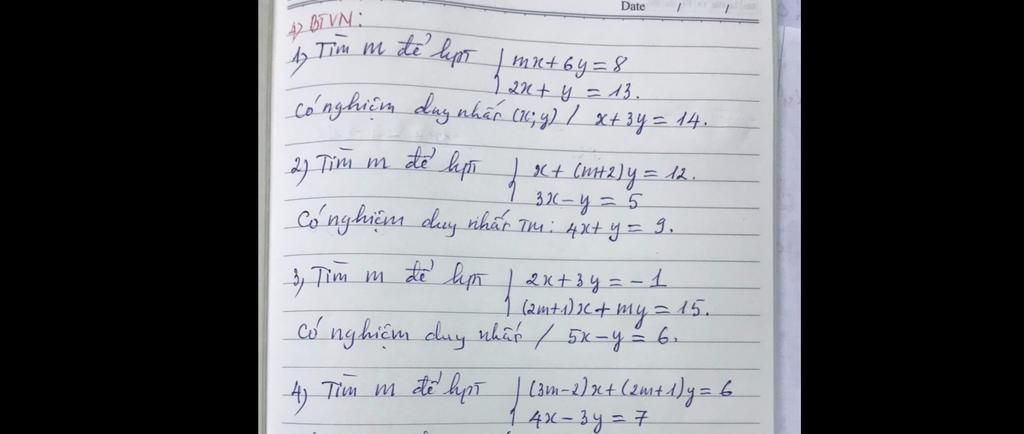 Date / /
4) BTVN:
1) Tìm m để hpt { mx + 6y = 8
2x + y = 13.
Có nghiệm duy nhất (x;y) / x + 3y = 14.
2) Tìm m để hpt { x + (m+2)y = 12.
3x - y = 5
Có nghiệm duy nhất TM: 4x + y = 9.
3, Tìm m để hpt { 2x + 3y = -1
(2m+1)x + my = 15.
Có nghiệm duy nhất / 5x - y = 6.
4) Tìm m để hpt { (3m-2)x + (2m+1)y = 6
4x - 3y = 7